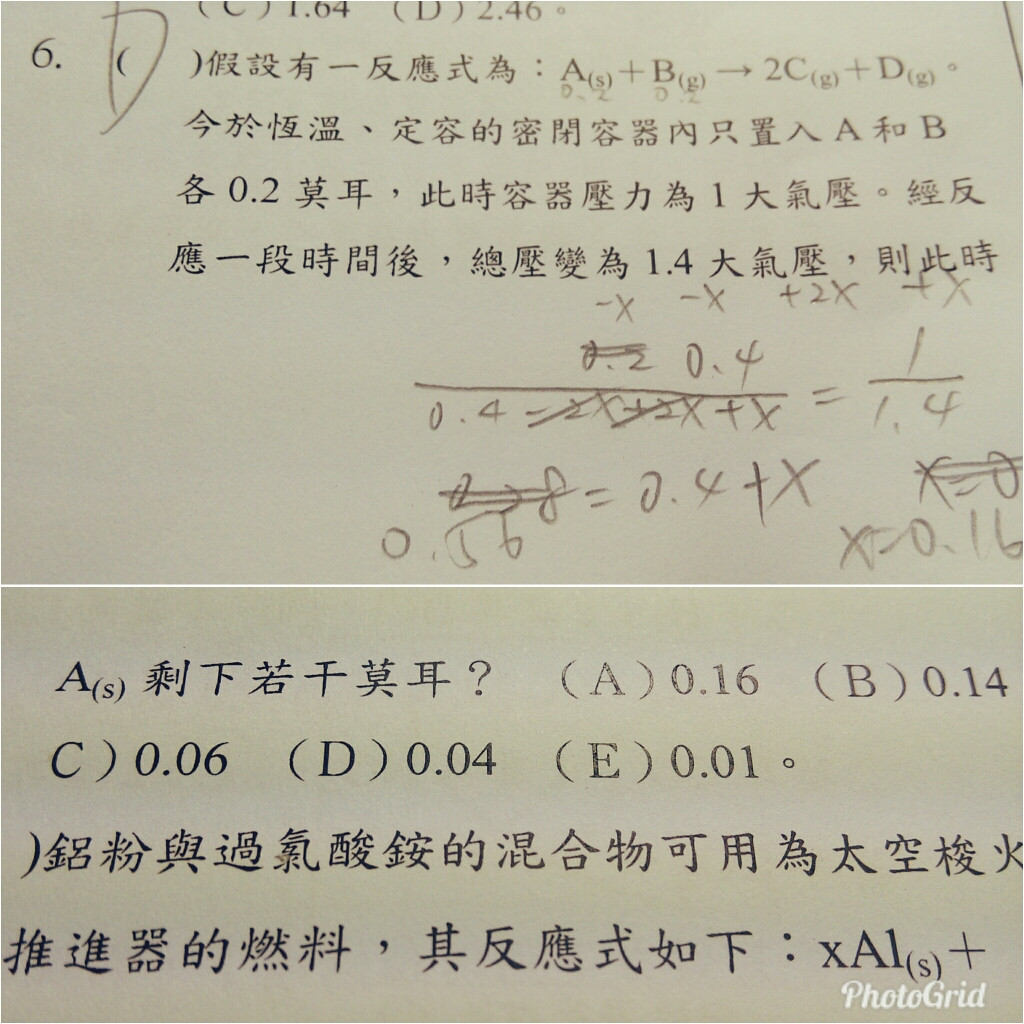 (C)1.64 (D)2.46。
6. ( D )假設有一反應式為：A(s)+B(g)→2C(g)+D(g)。
0.2 0.2
今於恆溫、定容的密閉容器內只置入 A 和 B
各 0.2 莫耳，此時容器壓力為 1 大氣壓。經反
應一段時間後，總壓變為 1.4 大氣壓，則此時
-x -x +2x +x
0.2 0.4 1
0.4 -2x+2x+x = 1.4
= 0.4+x
0.56 x=0.16
A(s) 剩下若干莫耳？ (A)0.16 (B)0.14
C)0.06 (D)0.04 (E)0.01。
)鋁粉與過氯酸銨的混合物可用為太空梭火
推進器的燃料，其反應式如下：xAl(s)+
PhotoGrid